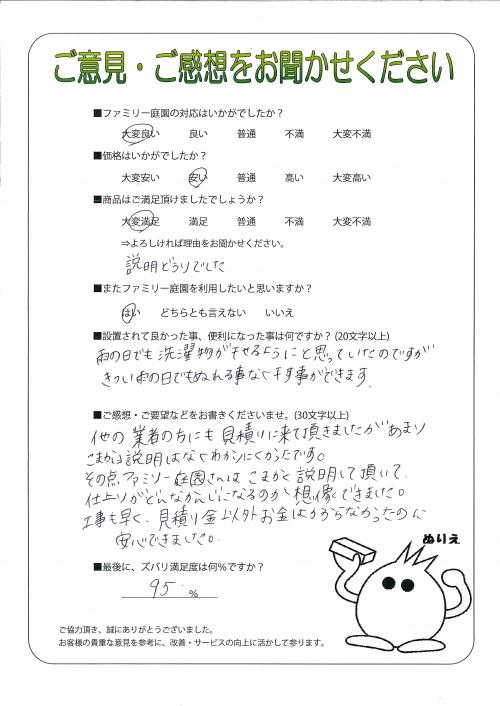 ご意見・ご感想をお聞かせください
■ファミリー庭園の対応はいかがでしたか？
大変良い 良い 普通 不満 大変不満
■価格はいかがでしたか？
大変安い 安い 普通 高い 大変高い
■商品はご満足頂けましたでしょうか？
大変満足 満足 普通 不満 大変不満
⇒よろしければ理由をお聞かせください。
説明どうりでした
■またファミリー庭園を利用したいと思いますか？
はい どちらとも言えない いいえ
■設置されて良かった事、便利になった事は何ですか？(20文字以上)
雨の日でも洗濯物が干せるようにと思っていたのですが
きつい雨の日でもぬれる事なく干す事ができます。
■ご感想・ご要望などをお書きくださいませ。(30文字以上)
他の業者の方にも見積りに来て頂きましたがあまり
こまかい説明はなくわかりにくかったです。
その点ファミリー庭園さんはこまかく説明して頂いて、
仕上りがどんなかんじになるのか想像できました。
工事も早く、見積り金以外お金はかからなかったのに
安心できました。
■最後に、ズバリ満足度は何%ですか？
95 %
ぬりえ
ご協力頂き、誠にありがとうございました。
お客様の貴重な意見を参考に、改善・サービスの向上に活かして参ります。